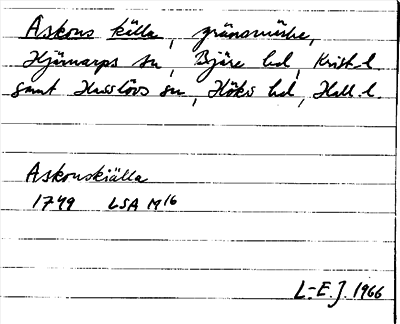 Askons källa, gränsmärke,
Hjärnarps sn, Bjäre hd, Krist. l.
samt Hasslövs sn, Höks hd, Hall. l.
Askonskiälla
1749 LSA M16
L.-E. J. 1966